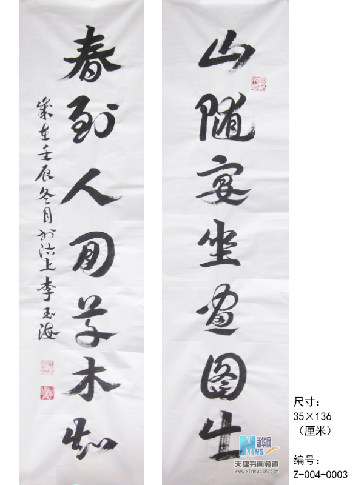 山随宴坐画图出
春到人间草木知
岁在壬辰冬月於沽上李玉海
天津书画频道
尺寸:
35×136
(厘米)
编号:
Z-004-0003